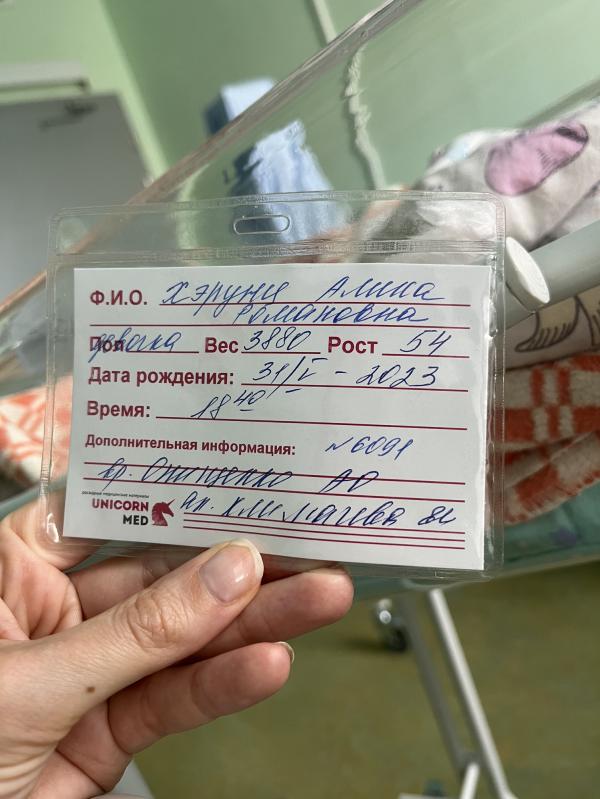 Ф.И.О. Хэруни Алина
Романовна
Пол девочка Вес 3880 Рост 54
Дата рождения: 31/V - 2023
Время: 18 40
Дополнительная информация: №6091
вр. Онищенко АО
расходные медицинские материалы
UNICORN MED
ак. Климачева